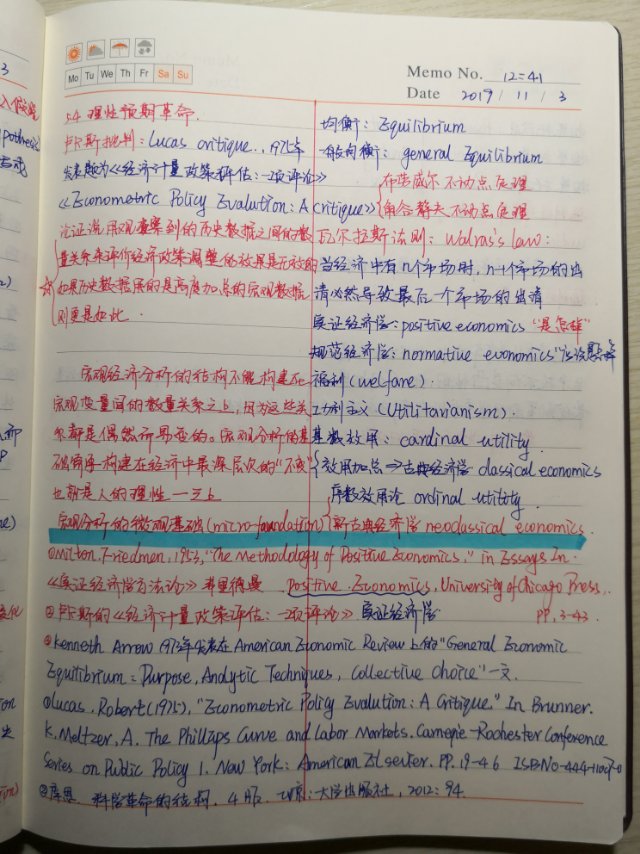 Mo Tu We Th Fr Sa Su
Memo No. 12:41
Date 2019 / 11 / 3
5.4 理性预期革命.
卢卡斯批判: Lucas critique., 1975年
发表题为《经济计量政策评估: 一项评论》
《Econometric Policy Evalution: A Critique》
论证说用观察到的历史数据之间的数
量关系来评价经济政策调整的效果是无效的
☆如果历史数据用的是高度加总的宏观数据
则更是如此.
宏观经济分析的结构不能构建在
宏观变量间的数量关系之上, 因为这些关
系都是偶然所界定的。宏观分析的基
础须构建在经济中最深层次的“不变”
也就是人的理性一之上
宏观分析的微观基础(micro-foundation)
均衡: Equilibrium
一般均衡: general Equilibrium
布劳威尔不动点定理
角谷静夫不动点定理
瓦尔拉斯法则: Walras's law:
当经济中有n个市场时, n-1个市场的出
清必然导致最后一个市场的出清
实证经济学: positive economics “是怎样”
规范经济学: normative economics “应该怎样
福利(welfane).
功利主义(Utilitarianism).
基数效用: cardinal utility.
效用加总→古典经济学 classical economics
序数效用论 ordinal utility.
新古典经济学 neoclassical economics.
①Milton. Friedmen, 1953, "The Methodology of Positive Economics," in Essays In
《实证经济学方法论》弗里德曼 Positive Economics, University of Chicago Press,.
② 卢卡斯的《经济计量政策评估: 一项评论》 实证经济学 PP. 3-43.
③Kenneth Arrow 1973年发表在American Economic Review上的"General Economic
Equilibrium: Purpose, Analytic Techniques, Collective Choice"一文.
④Lucas, Robert(1975), "Econometric Policy Evalution: A Critique." In Brunner.
K. Meltzer, A. The Phillaps Curve and Labor Markets. Carnegie-Rochester Conference
Series on Public Policy 1. New York: American Elseiter. PP. 19-46 ISBN0-444-
⑤库恩. 科学革命的结构. 4版. 北京: 大学出版社, 2012: 94.